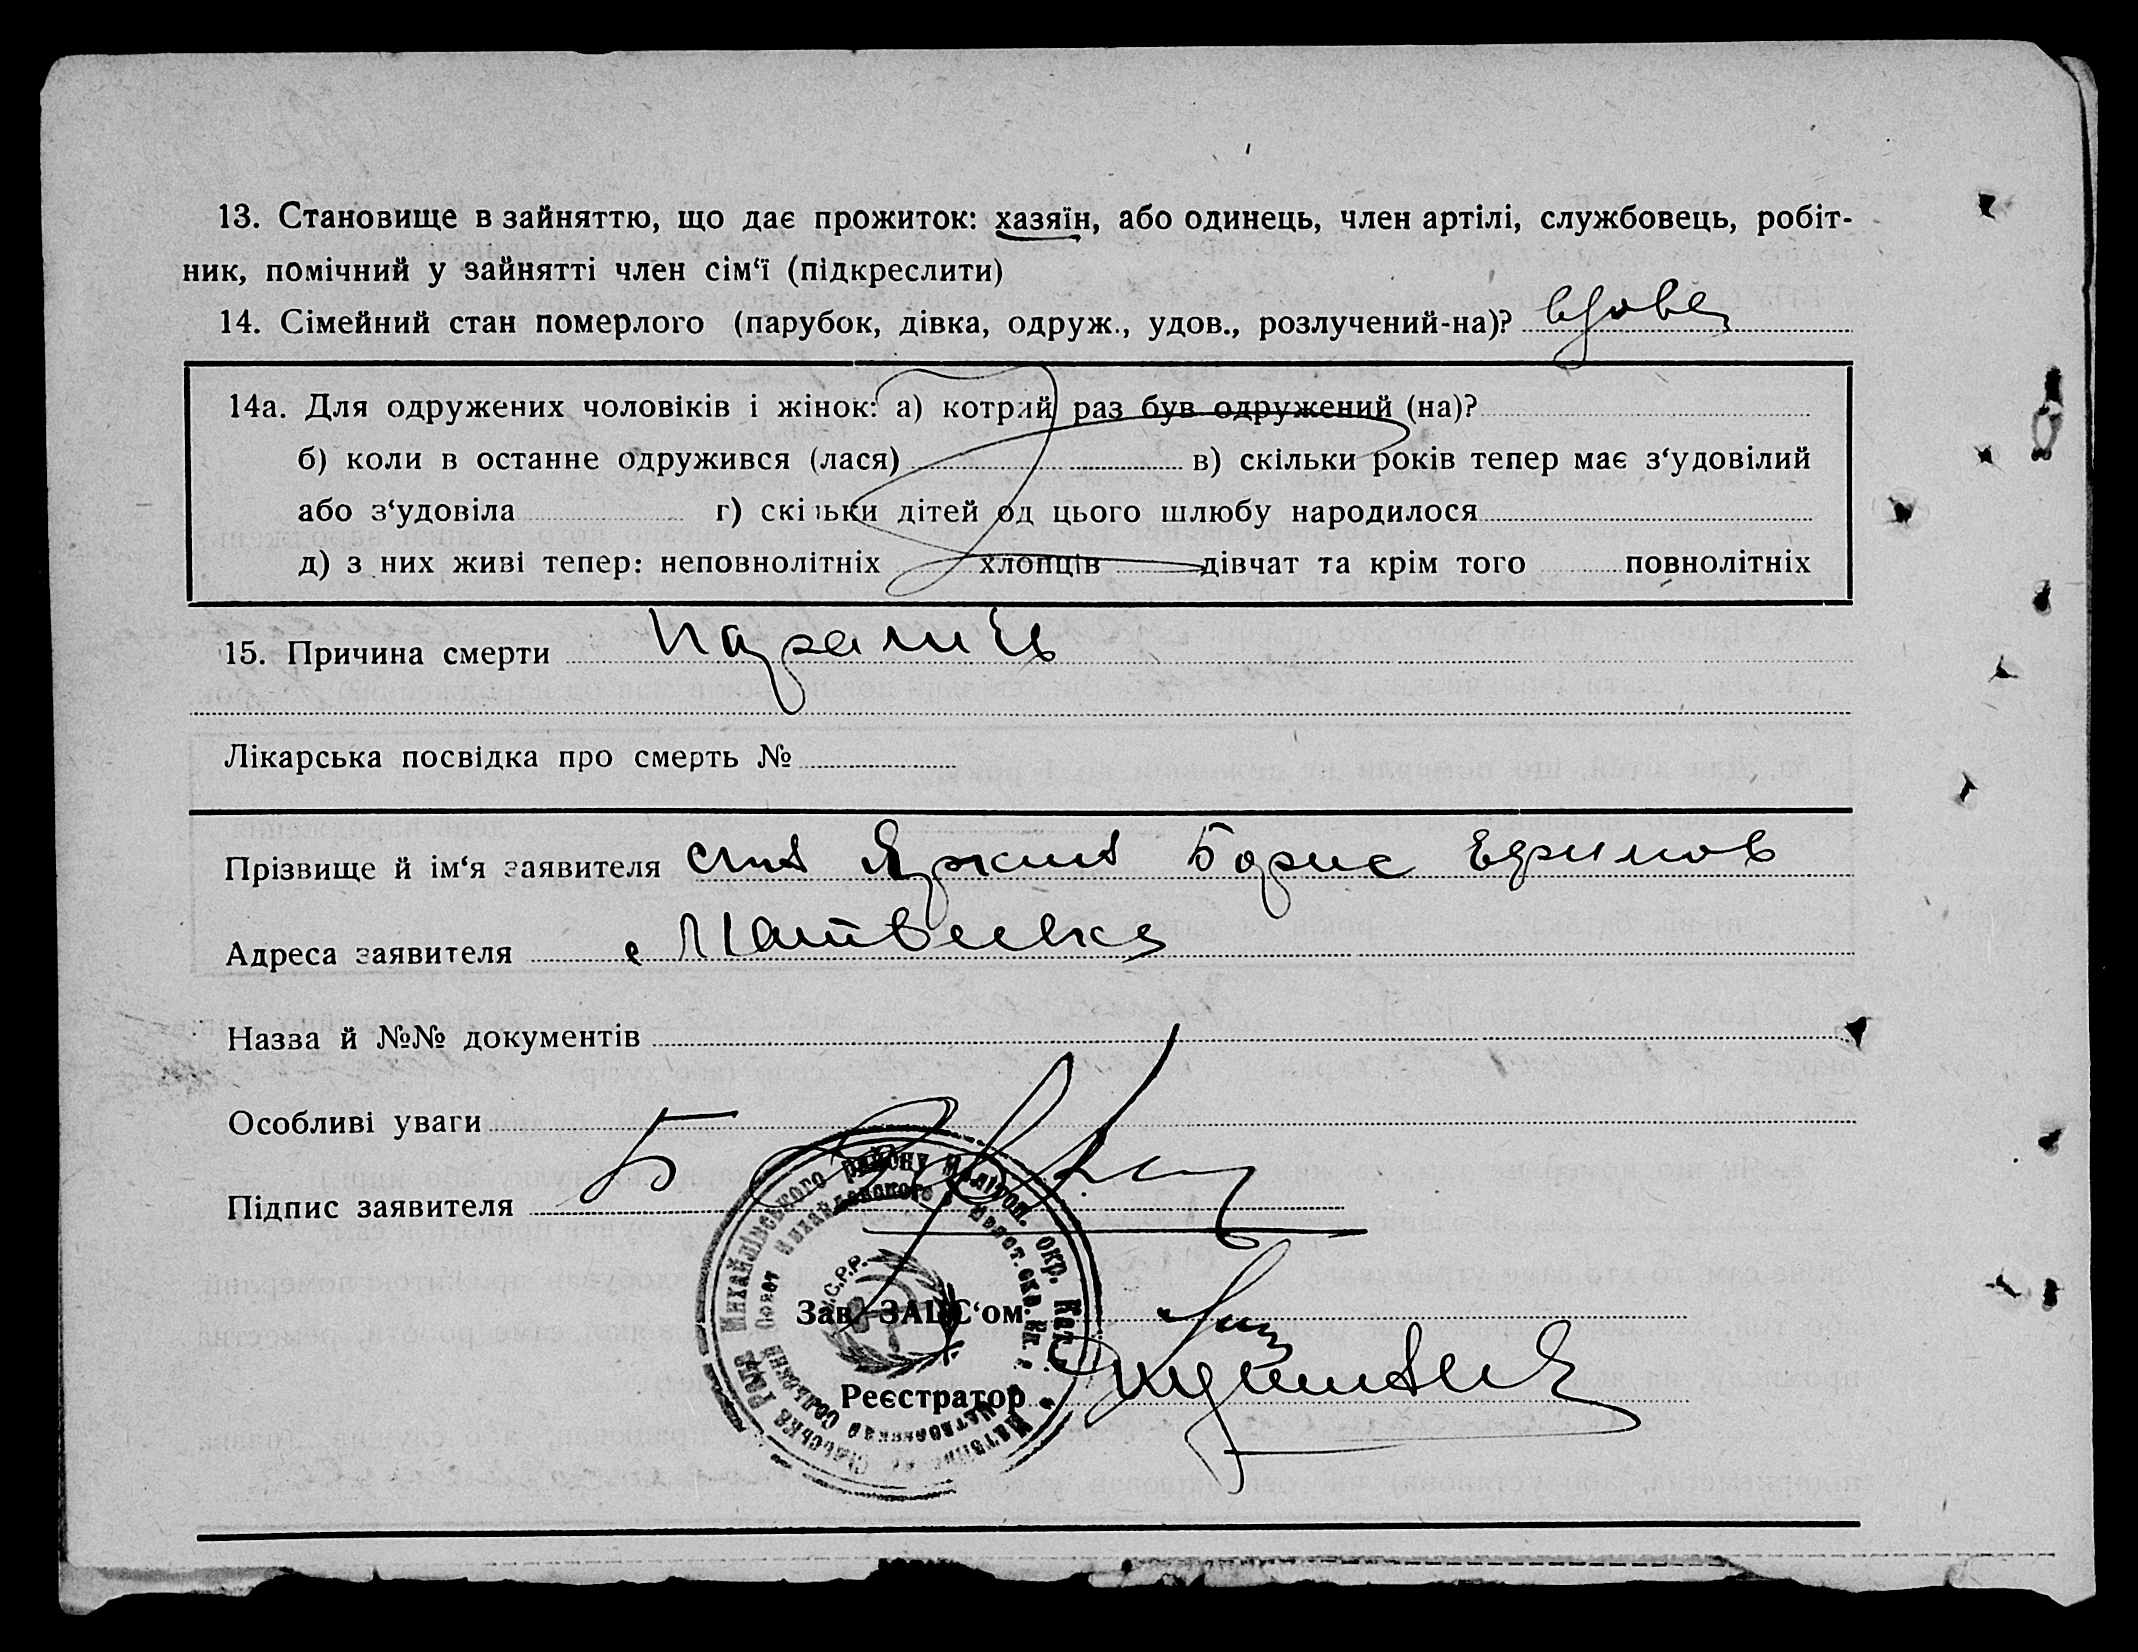 13. Становище в зайняттю, що дає прожиток: хазяїн, або одинець, член артілі, службовець, робіт-
ник, помічний у зайнятті член сім‘ї (підкреслити)
14. Сімейний стан померлого (парубок, дівка, одруж., удов., розлучений-на)? вдовец
14а. Для одружених чоловіків і жінок: а) котрий раз був одружений (на)?
б) коли в останне одружився (лася) в) скільки років тепер має з‘удовілий
або з‘удовіла г) скільки дітей од цього шлюбу народилося
д) з них живі тепер: неповнолітніх хлопців дівчат та крім того повнолітніх
15. Причина смерти
Лікарська посвідка про смерть №
Прізвище й ім‘я заявителя Борис Ефимов
Адреса заявителя с Матвеевка
Назва й №№ документів
Особливі уваги
Підпис заявителя Б
Михайлівського району Мелітоп. окр.
У.С.Р.Р.
Зав. ЗАЦС‘ом
Реєстратор